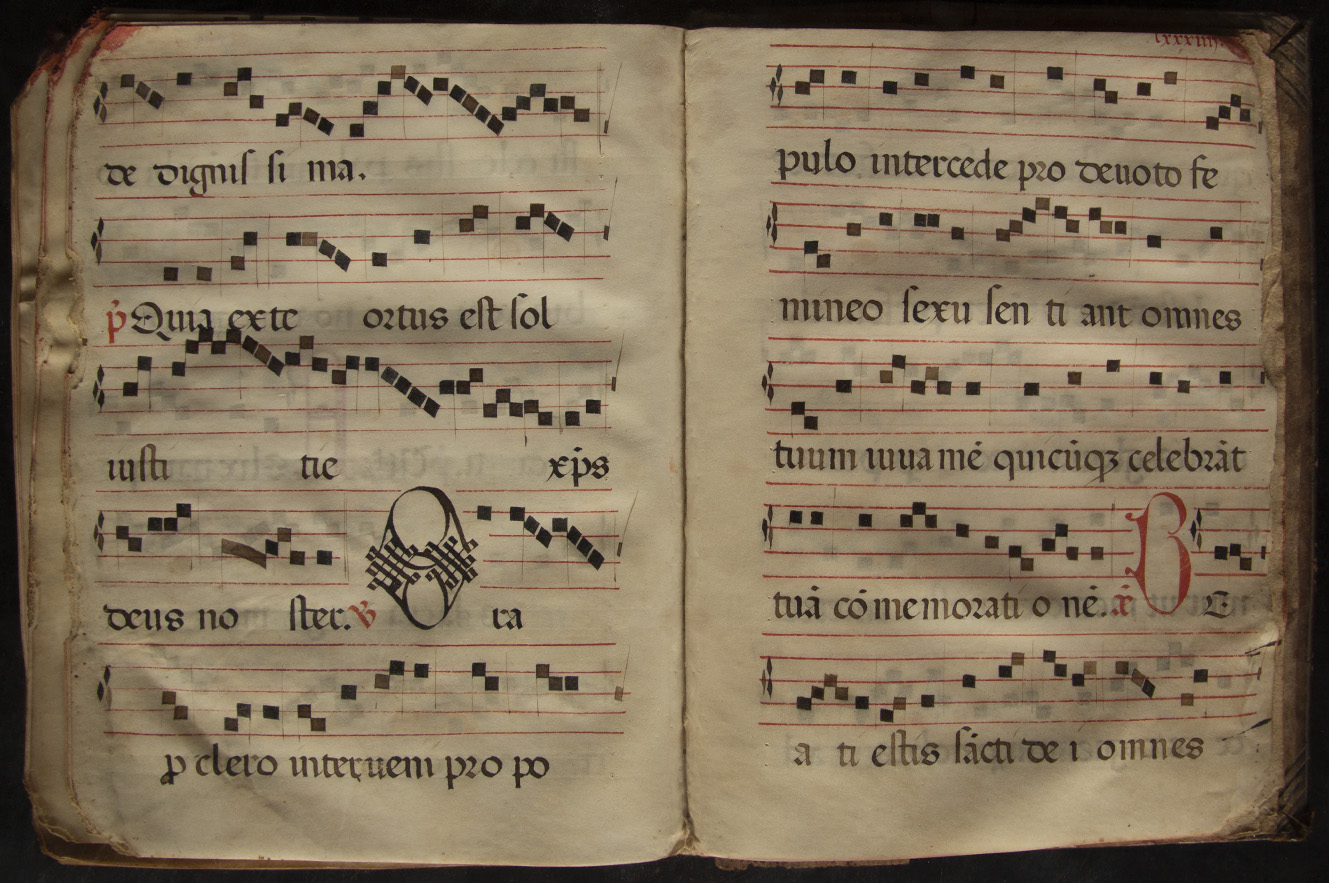 de dignis si ma.
p̃ Quia exte ortus est sol
iusti tie xp̄s
deus no ster. ṽ O ra
p clero interueni pro po
lxxxiiii
pulo intercede pro deuoto fe
mineo sexu sen ti ant omnes
tuum iuuamē quicūqꝫ celebrāt
tuā cō memorati o nē. r̃ B E
a ti estis sācti de i omnes